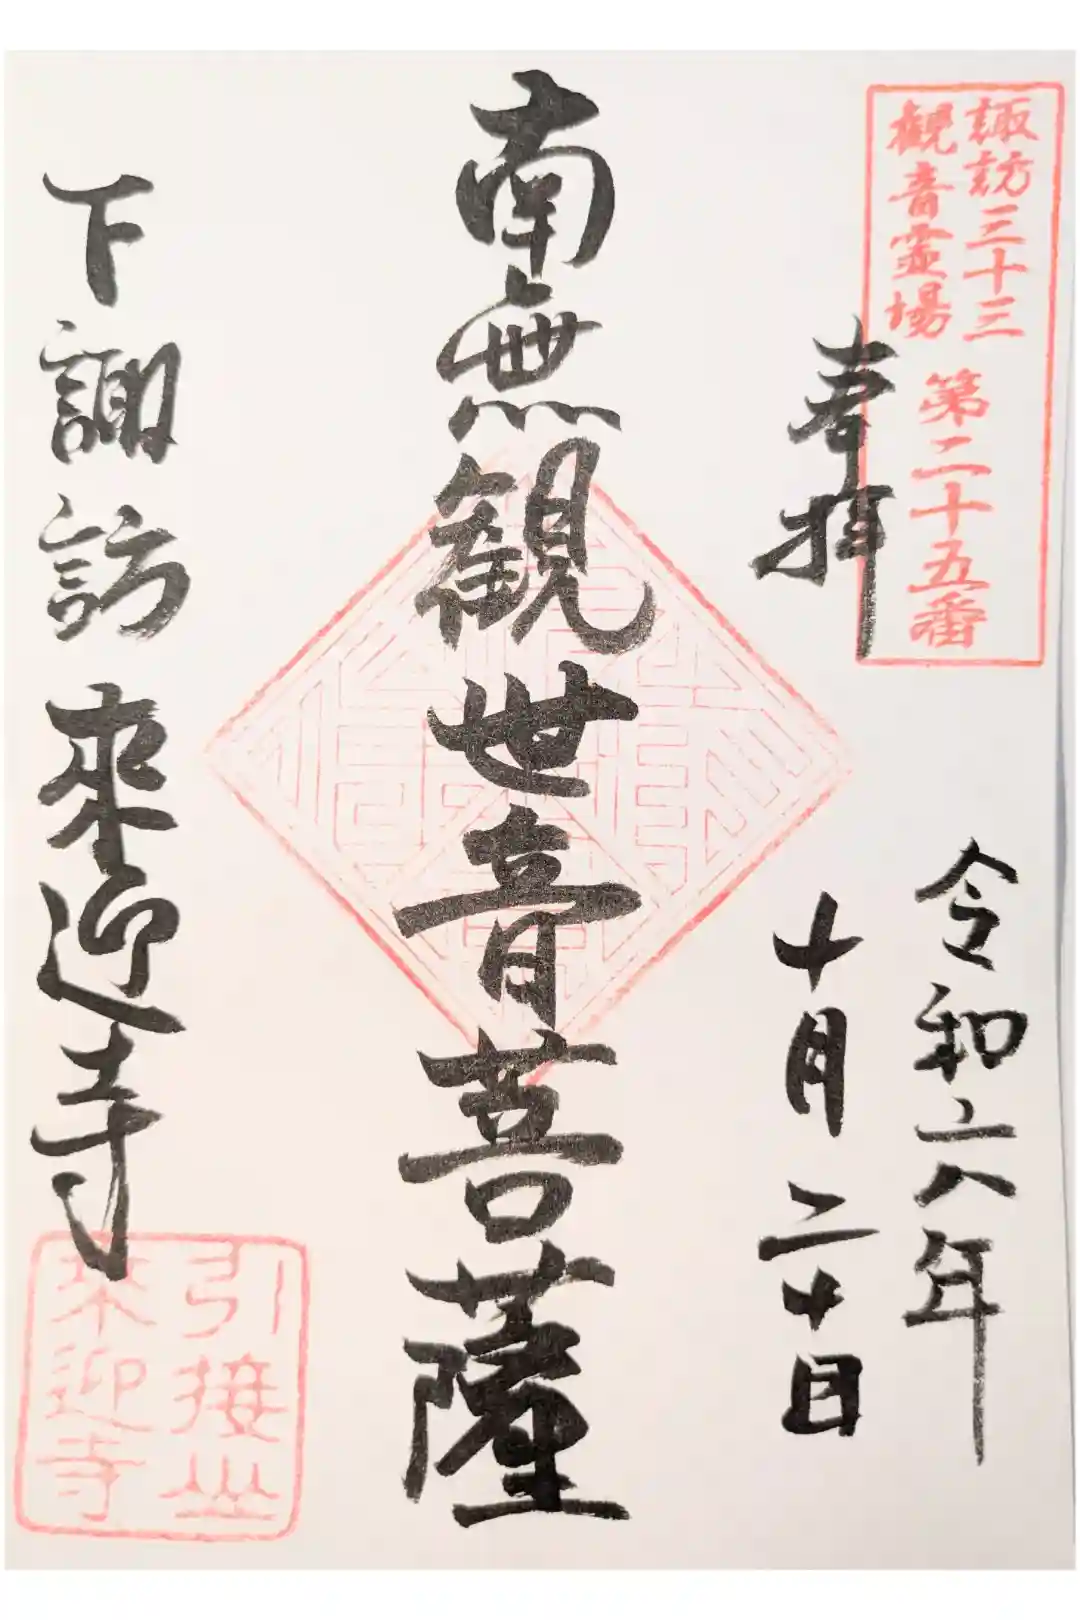 諏訪三十三
観音霊場
第二十五番
奉拝
令和六年
十月二十日
南無観世音菩薩
下諏訪 來迎寺
引接山
来迎寺